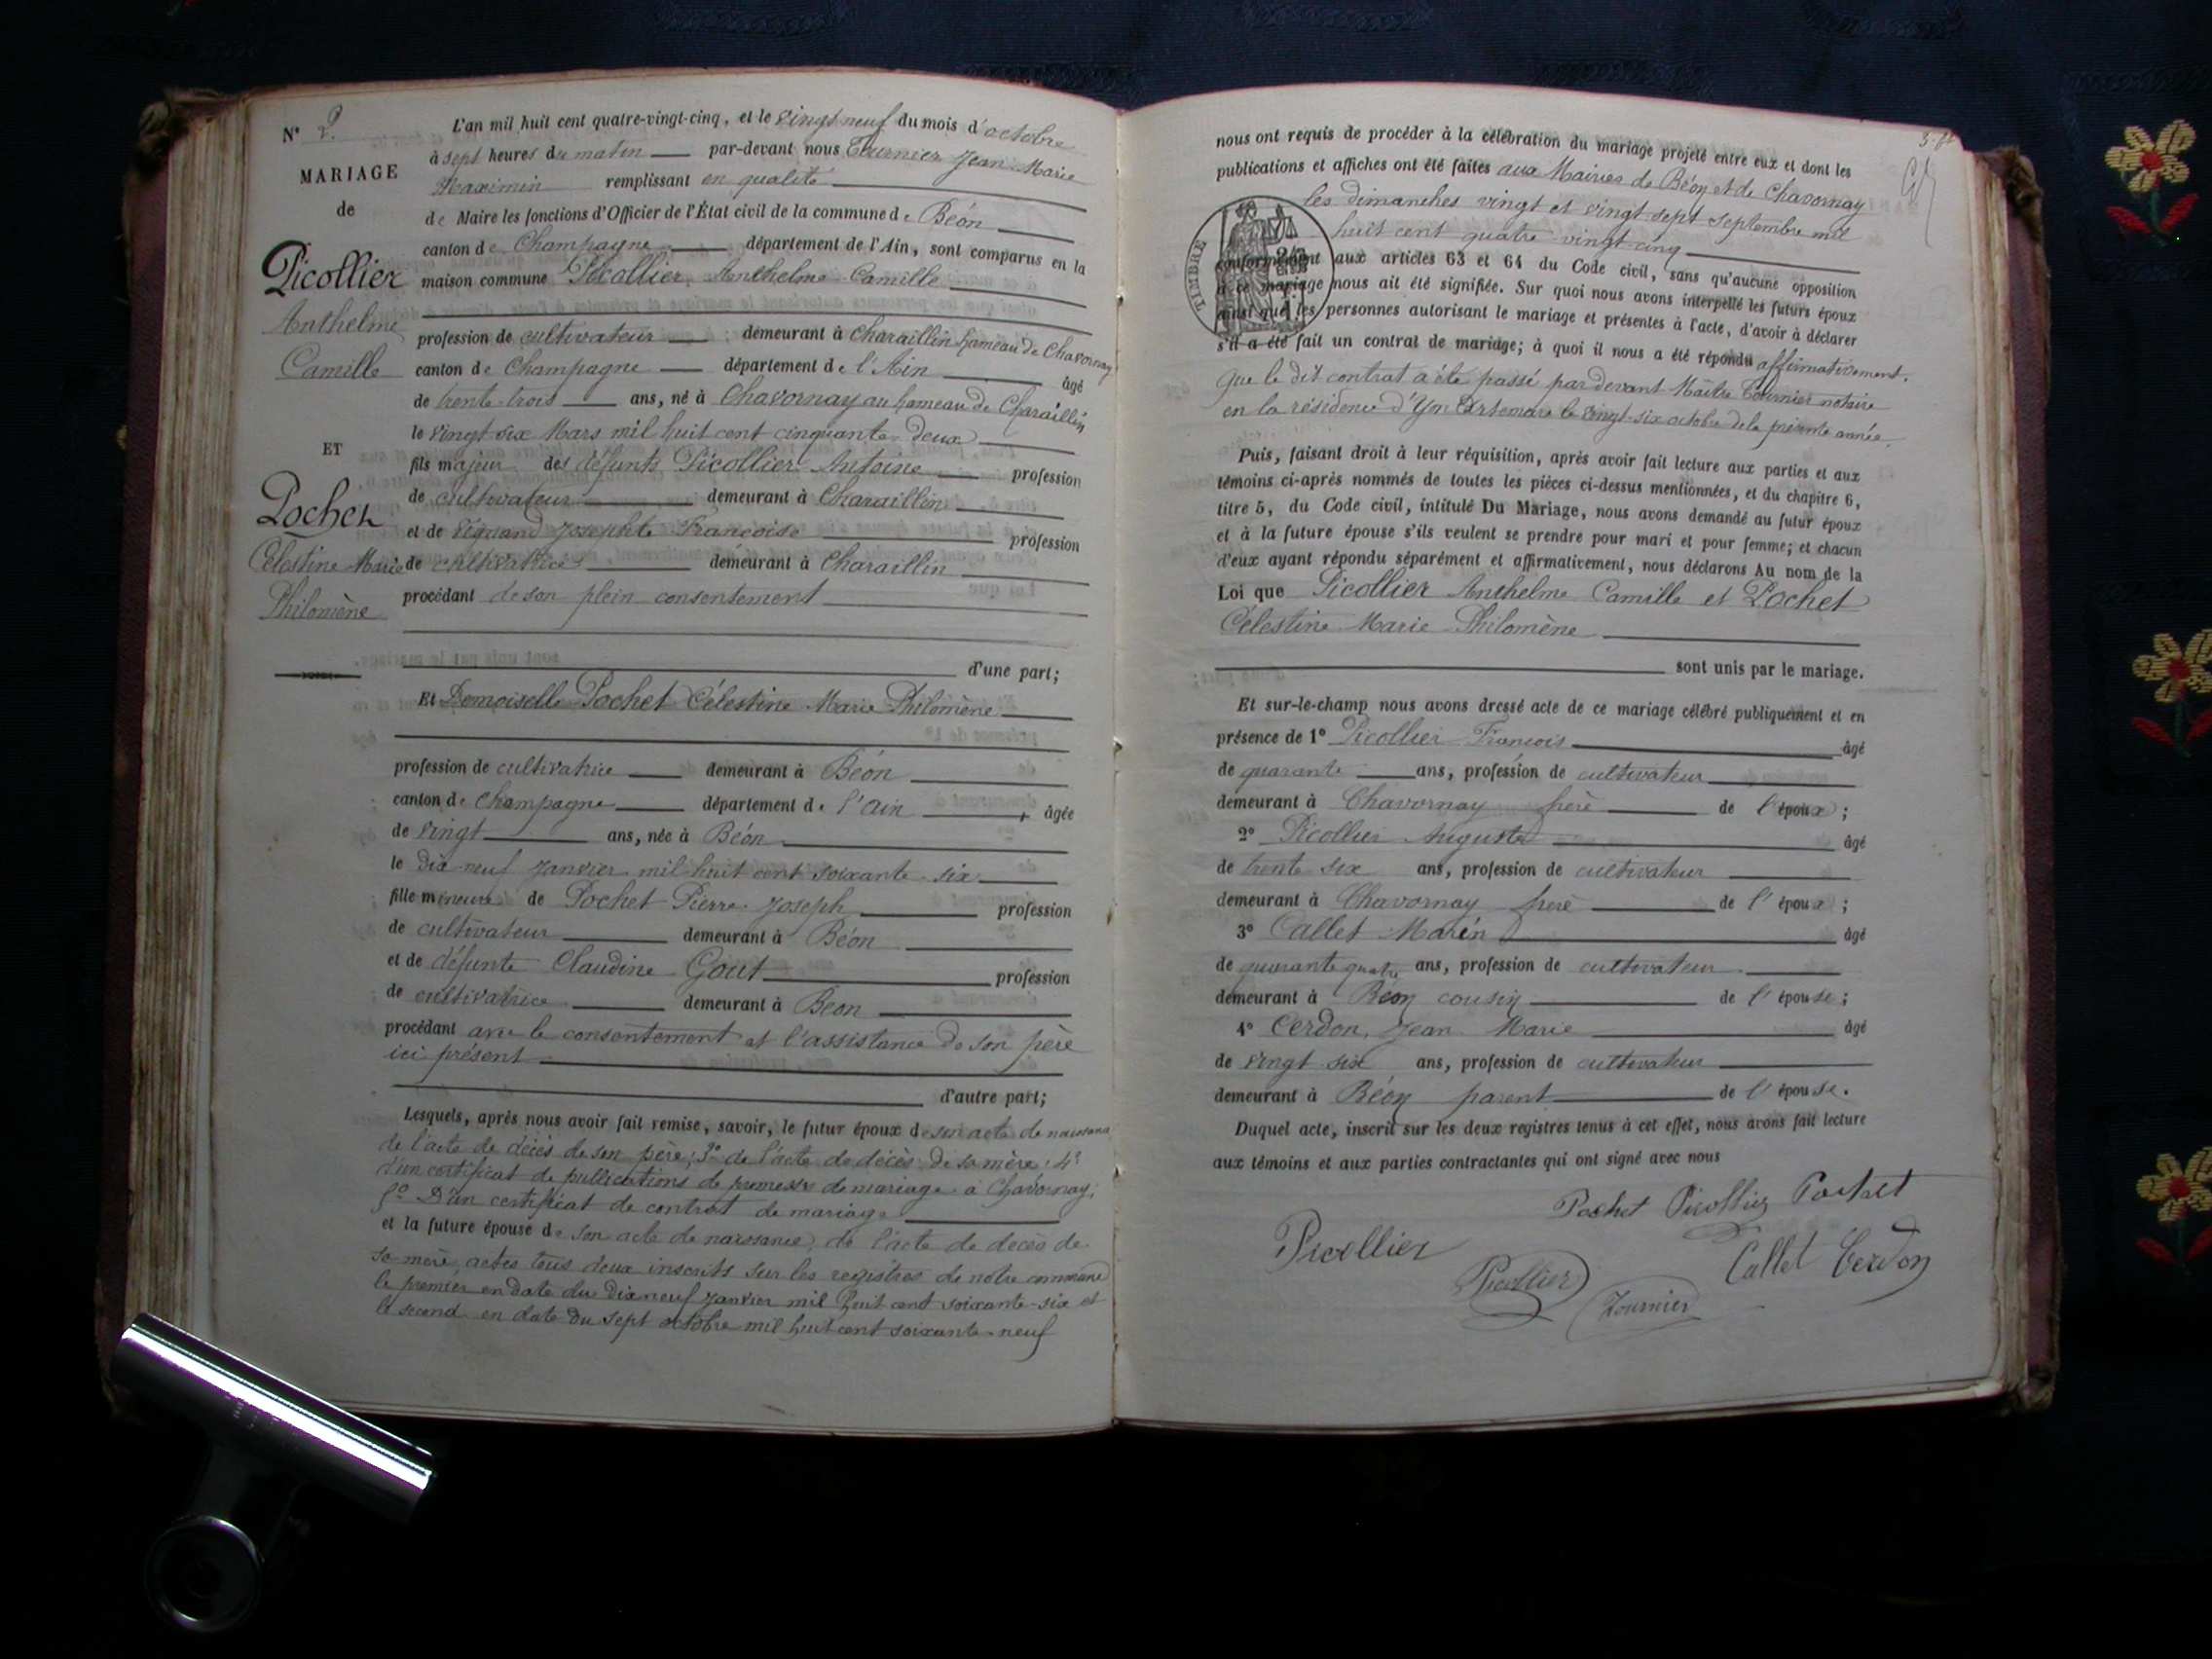 N° 2.
MARIAGE
de
Picollier
Anthelme
Camille
ET
Pochet
Célestine Marie
Philomène
L'an mil huit cent quatre-vingt-cinq, et le vingt neuf du mois d'octobre
à sept heures du matin par-devant nous Tournier Jean Marie
Maximin remplissant en qualité
de Maire les fonctions d'Officier de l'État civil de la commune de Béon
canton de Champagne département de l'Ain, sont comparus en la
maison commune Picollier Anthelme Camille
profession de cultivateur demeurant à Charaillin hameau de Chavornay
canton de Champagne département de l'Ain âgé
de trente-trois ans, né à Chavornay au hameau de Charaillin
le vingt six Mars mil huit cent cinquante deux
fils majeur des défunts Picollier Antoine profession
de cultivateur demeurant à Charaillin
et de Josephte Françoise profession
de cultivatrice demeurant à Charaillin
procédant de son plein consentement
d'une part;
Et Demoiselle Pochet Célestine Marie Philomène
profession de cultivatrice demeurant à Béon
canton de Champagne département de l'ain, âgée
de vingt ans, née à Béon
le dix-neuf Janvier mil huit cent soixante-six
fille mineure de Pochet Pierre Joseph profession
de cultivateur demeurant à Béon
et de défunte Claudine Gout profession
de cultivatrice demeurant à Béon
procédant avec le consentement et l'assistance de son père
ici présent
d'autre part;
Lesquels, après nous avoir fait remise, savoir, le futur époux de son acte de naissance
de l'acte de décès de son père; 3° de l'acte de décès de sa mère; 4°
d'un certificat de publications de promesse de mariage à Chavornay;
5° D'un certificat de contrat de mariage
et la future épouse de son acte de naissance, de l'acte de décès de
sa mère, actes tous deux inscrits sur les registres de notre commune
le premier en date du dix neuf Janvier mil huit cent soixante-six et
le second en date du sept octobre mil huit cent soixante-neuf
nous ont requis de procéder à la célébration du mariage projeté entre eux et dont les
publications et affiches ont été faites aux Mairies de Béon et de Chavornay
les dimanches vingt et vingt-sept septembre mil
huit cent quatre vingt-cinq
TIMBRE
conformément aux articles 63 et 64 du Code civil, sans qu'aucune opposition
à ce mariage nous ait été signifiée. Sur quoi nous avons interpellé les futurs époux
ainsi que les personnes autorisant le mariage et présentes à l'acte, d'avoir à déclarer
s'il a été fait un contrat de mariage; à quoi il nous a été répondu affirmativement.
Que le dit contrat a été passé par devant Maître Tournier notaire
en la résidence d'Yon Artemare le vingt-six octobre de la présente année.
Puis, faisant droit à leur réquisition, après avoir fait lecture aux parties et aux
témoins ci-après nommés de toutes les pièces ci-dessus mentionnées, et du chapitre 6,
titre 5, du Code civil, intitulé Du Mariage, nous avons demandé au futur époux
et à la future épouse s'ils veulent se prendre pour mari et pour femme; et chacun
d'eux ayant répondu séparément et affirmativement, nous déclarons Au nom de la
Loi que Picollier Anthelme Camille et Pochet
Célestine Marie Philomène
sont unis par le mariage.
Et sur-le-champ nous avons dressé acte de ce mariage célébré publiquement et en
présence de 1° Picollier François âgé
de quarante ans, profession de cultivateur
demeurant à Chavornay frère de l'époux;
2° Picollier Auguste âgé
de trente six ans, profession de cultivateur
demeurant à Chavornay frère de l'époux;
3° Callet Marin âgé
de quarante quatre ans, profession de cultivateur
demeurant à Béon cousin de l'épouse;
4° Cerdon, Jean Marie âgé
de vingt six ans, profession de cultivateur
demeurant à Béon parent de l'épouse.
Duquel acte, inscrit sur les deux registres tenus à cet effet, nous avons fait lecture
aux témoins et aux parties contractantes qui ont signé avec nous
Pochet Picollier Pochet
Picollier
Callet Cerdon
Picollier
Tournier